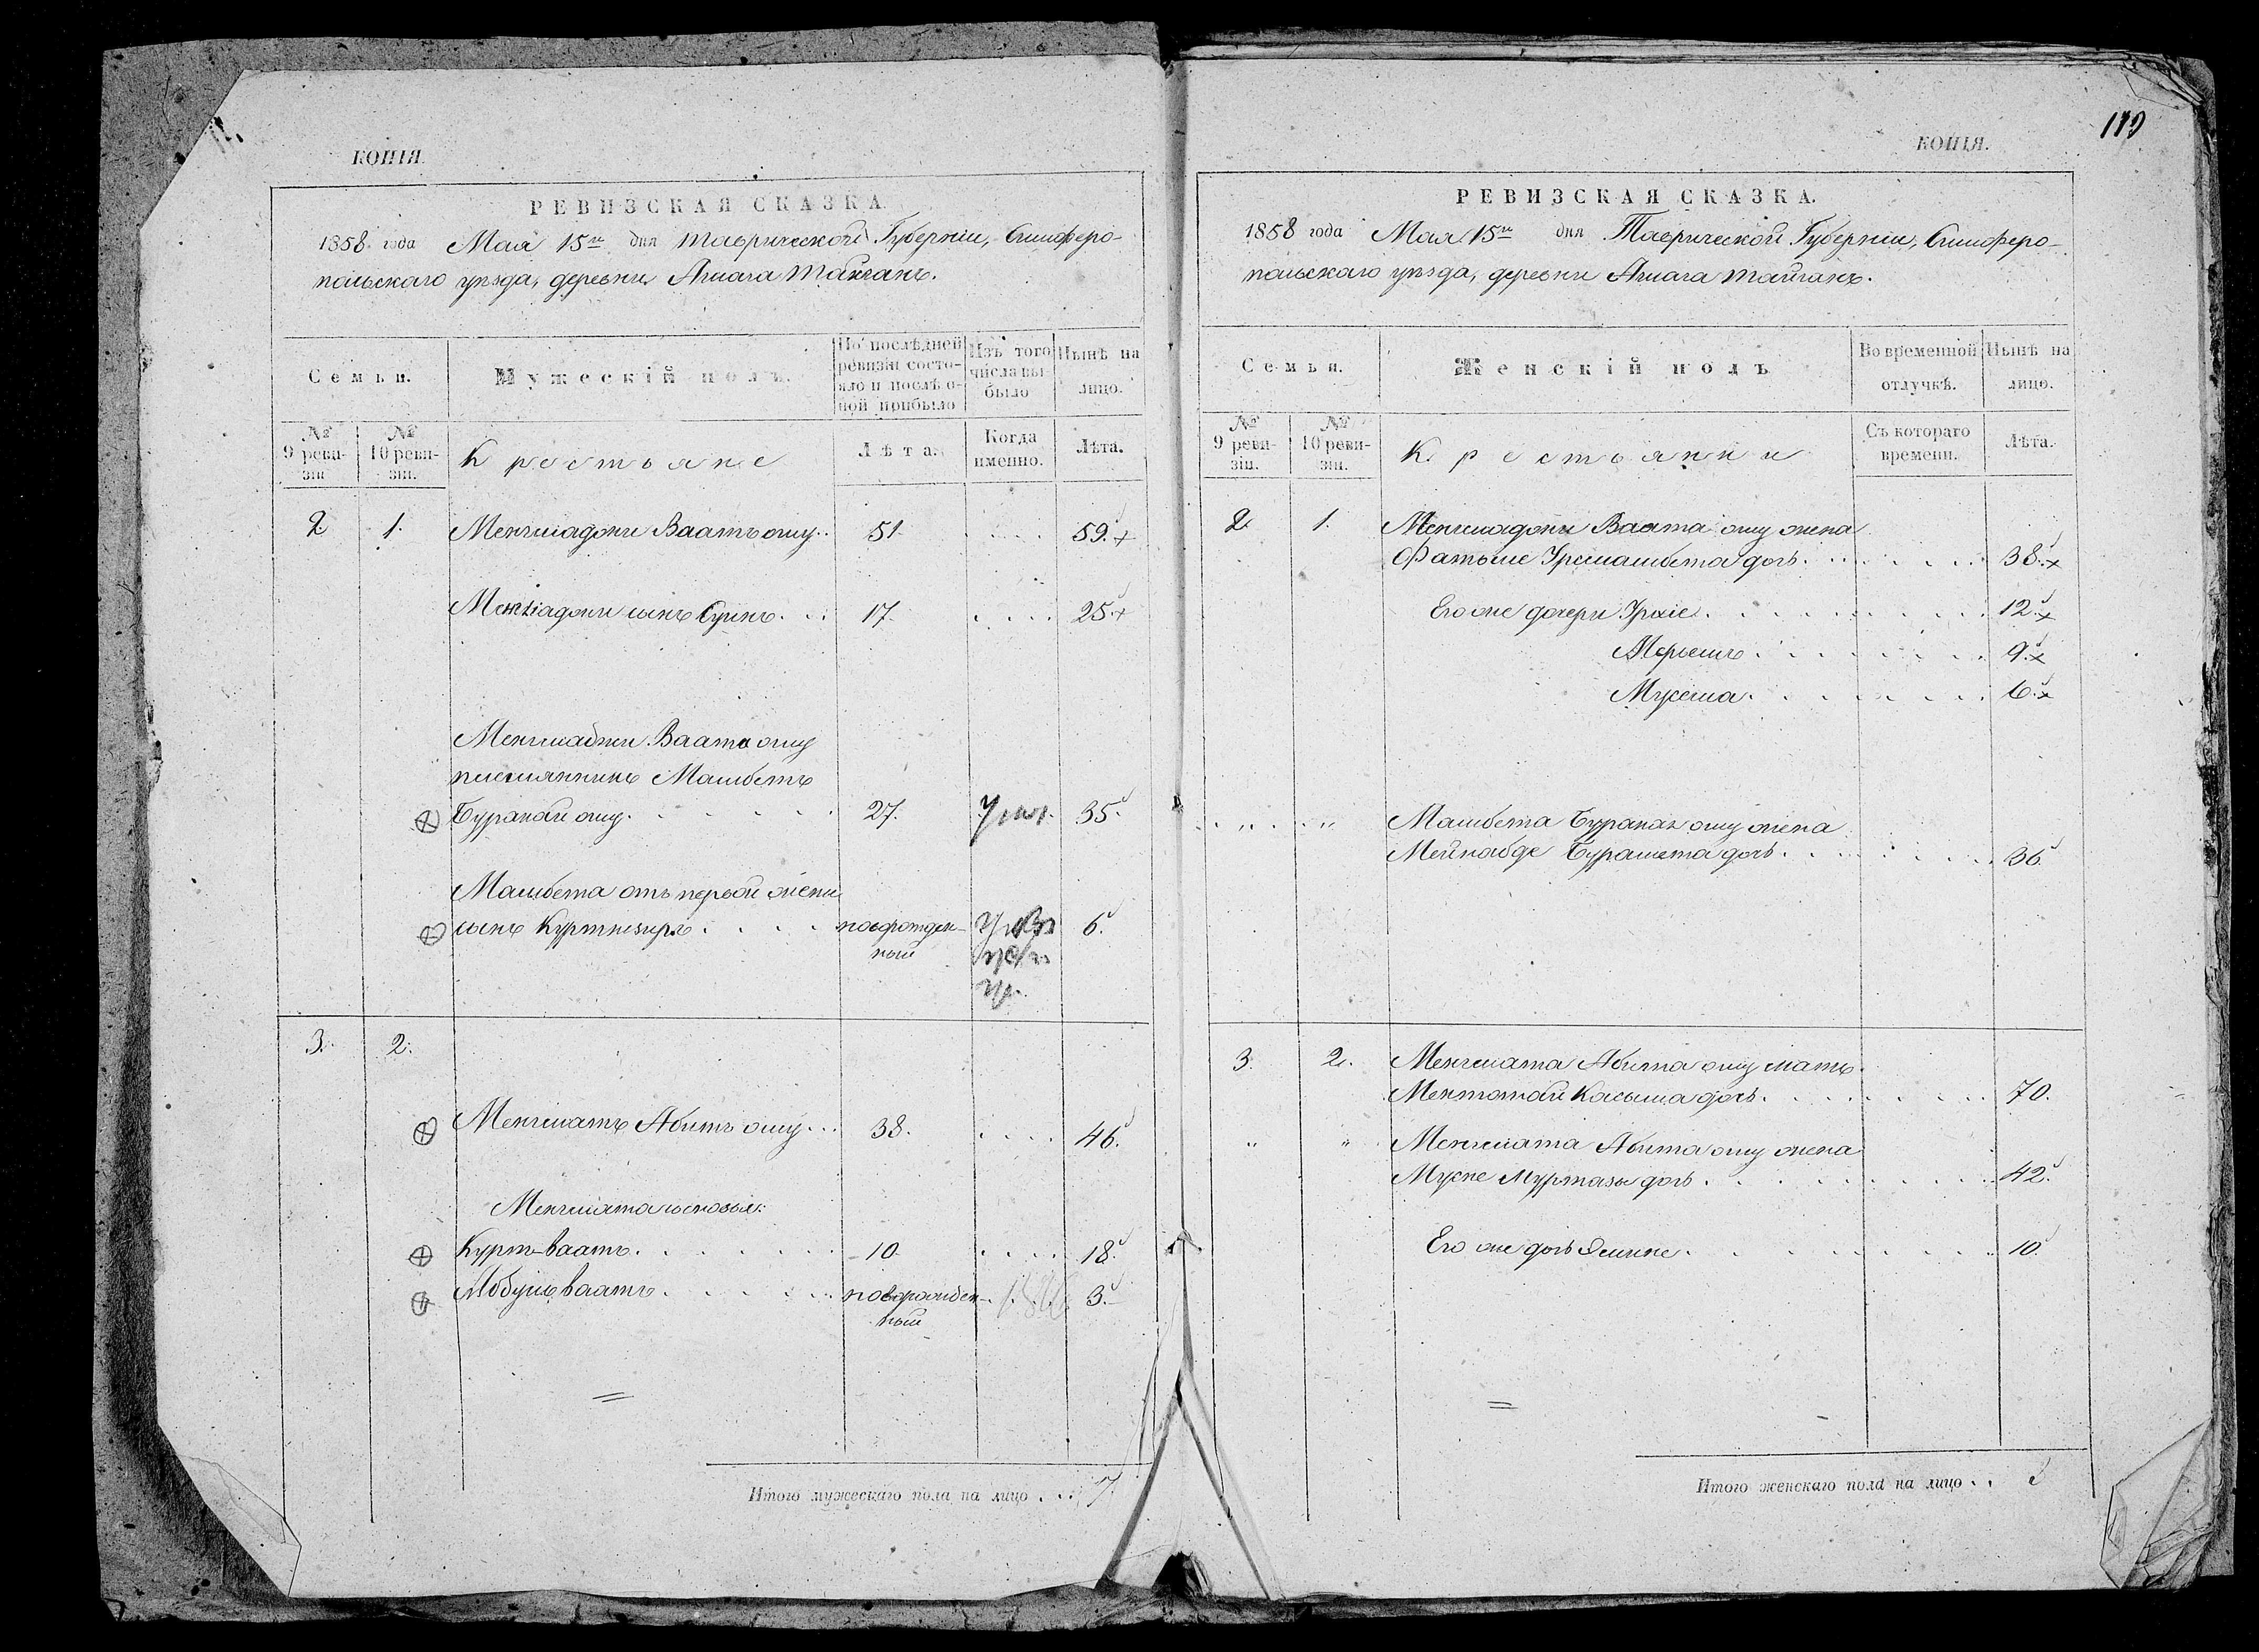 КОПІЯ.
РЕВИЗСКАЯ СКАЗКА.
1858 года Мая 15го дня Таврической Губерніи, Симферо-
польскаго уѣзда, деревни Алмага Тайганъ.
Семьи.
Мужескій полъ.
По послѣдней ревизіи состояло и послѣ оной прибыло
Изъ того числа выбыло
Нынѣ на лицо.
№ 9 ревизіи
№ 10 ревизіи.
Крестьяне
Лѣта.
Когда именно.
Лѣта.
2. 1. Менгмаджи Ваатъ оглу.. 51. .... 59.
Менгмаджи сынъ Сунъ... 17. .... 25.
Менгмаджи Ваата оглу
племянникъ Мамбетъ
Буранай оглу. 27. 35.
Мамбета отъ первой жены
сынъ Куртнезиръ.... новорожден- 6.
ный
3. 2.
Менгматъ Абитъ оглу... 38. .... 46.
Менгмата сыновья:
Куртъ-ваатъ. 10. .... 18.
Абдулъ ваатъ. новорожден- 3.
ный
Итого мужескаго пола на лицо... 7.
119
КОПІЯ.
РЕВИЗСКАЯ СКАЗКА.
1858 года Мая 15го дня Таврической Губерніи, Симферо-
польскаго уѣзда, деревни Алмага Тайганъ.
Семьи.
Женскій полъ
Во временной отлучкѣ.
Нынѣ на лицо.
№ 9 ревизіи.
№ 10 ревизіи.
Крестьянки
Съ котораго времени.
Лѣта.
2. 1. Менгмаджи Ваата оглу жена
Фатьме Уремамбета дочь. 38.
Его же дочери Уркіе. 12.
Мерьемъ. 9.
Муслма. 6.
" " Мамбета Буранай оглу жена
Мейнабде Бурашета дочь. 36.
3. 2. Менгмата Абита оглу мать
Ментотай Касыма дочь. 70.
" " Менгмата Абита оглу жена
Мусне Муртазы дочь. 42.
Его же дочь Эмине. 10.
Итого женскаго пола на лицо..